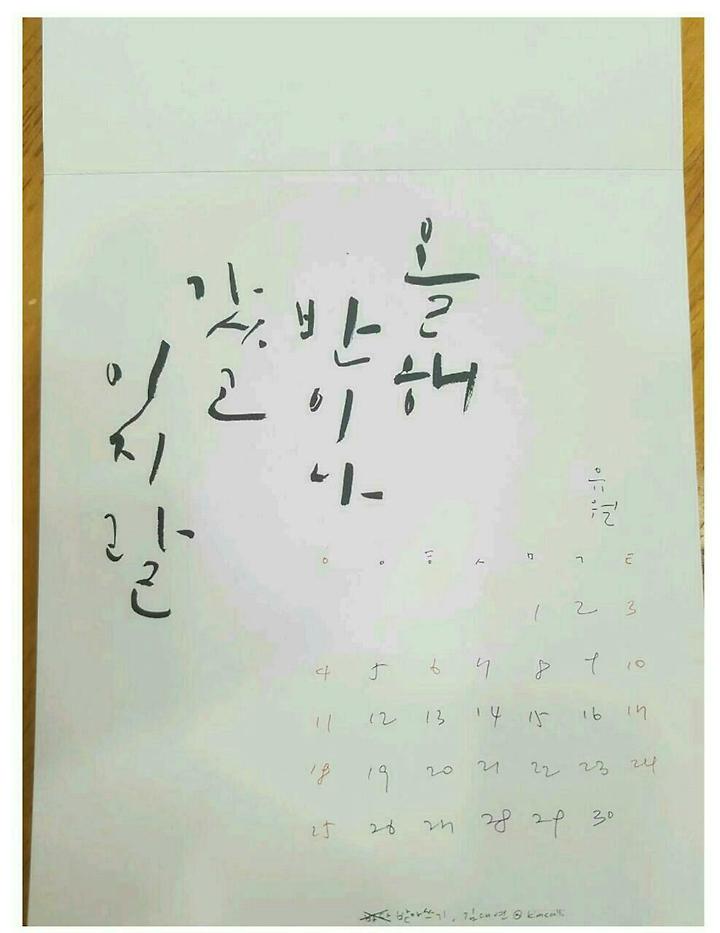 올해
반이나
갔고
이지랄
유월
ㅇ ㅇ ㅎ ㅅ ㅁ ㄱ ㅌ
1 2 3
4 5 6 7 8 9 10
11 12 13 14 15 16 17
18 19 20 21 22 23 24
25 26 27 28 29 30
받아쓰기, 김대연 @